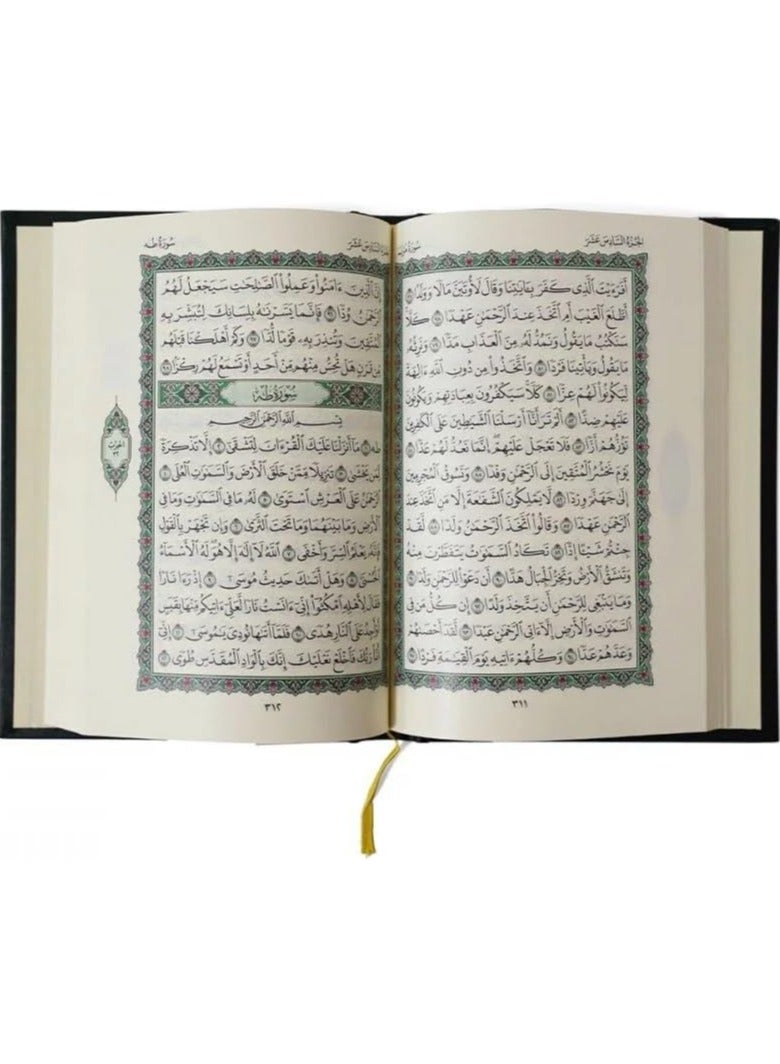 الجُزْءُ السَّادِسَ عَشَرَ سُورَةُ مَرْيَم
أَفَرَءَيْتَ ٱلَّذِى كَفَرَ بِـَٔايَٰتِنَا وَقَالَ لَأُوتَيَنَّ مَالًا وَوَلَدًا ٧٧
أَطَّلَعَ ٱلْغَيْبَ أَمِ ٱتَّخَذَ عِندَ ٱلرَّحْمَٰنِ عَهْدًا ٧٨ كَلَّا
سَنَكْتُبُ مَا يَقُولُ وَنَمُدُّ لَهُۥ مِنَ ٱلْعَذَابِ مَدًّا ٧٩ وَنَرِثُهُۥ
مَا يَقُولُ وَيَأْتِينَا فَرْدًا ٨٠ وَٱتَّخَذُوا۟ مِن دُونِ ٱللَّهِ ءَالِهَةً
لِّيَكُونُوا۟ لَهُمْ عِزًّا ٨١ كَلَّا سَيَكْفُرُونَ بِعِبَادَتِهِمْ وَيَكُونُونَ
عَلَيْهِمْ ضِدًّا ٨٢ أَلَمْ تَرَ أَنَّآ أَرْسَلْنَا ٱلشَّيَٰطِينَ عَلَى ٱلْكَٰفِرِينَ
تَؤُزُّهُمْ أَزًّا ٨٣ فَلَا تَعْجَلْ عَلَيْهِمْ إِنَّمَا نَعُدُّ لَهُمْ عَدًّا ٨٤
يَوْمَ نَحْشُرُ ٱلْمُتَّقِينَ إِلَى ٱلرَّحْمَٰنِ وَفْدًا ٨٥ وَنَسُوقُ ٱلْمُجْرِمِينَ
إِلَىٰ جَهَنَّمَ وِرْدًا ٨٦ لَّا يَمْلِكُونَ ٱلشَّفَٰعَةَ إِلَّا مَنِ ٱتَّخَذَ عِندَ
ٱلرَّحْمَٰنِ عَهْدًا ٨٧ وَقَالُوا۟ ٱتَّخَذَ ٱلرَّحْمَٰنُ وَلَدًا ٨٨ لَّقَدْ
جِئْتُمْ شَيْـًٔا إِدًّا ٨٩ تَكَادُ ٱلسَّمَٰوَٰتُ يَتَفَطَّرْنَ مِنْهُ
وَتَنشَقُّ ٱلْأَرْضُ وَتَخِرُّ ٱلْجِبَالُ هَدًّا ٩٠ أَن دَعَوْا۟ لِلرَّحْمَٰنِ وَلَدًا ٩١
وَمَا يَنۢبَغِى لِلرَّحْمَٰنِ أَن يَتَّخِذَ وَلَدًا ٩٢ إِن كُلُّ مَن فِى
ٱلسَّمَٰوَٰتِ وَٱلْأَرْضِ إِلَّآ ءَاتِى ٱلرَّحْمَٰنِ عَبْدًا ٩٣ لَّقَدْ أَحْصَىٰهُمْ
وَعَدَّهُمْ عَدًّا ٩٤ وَكُلُّهُمْ ءَاتِيهِ يَوْمَ ٱلْقِيَٰمَةِ فَرْدًا ٩٥
٣١١
الجُزْءُ السَّادِسَ عَشَرَ سُورَةُ طه
إِنَّ ٱلَّذِينَ ءَامَنُوا۟ وَعَمِلُوا۟ ٱلصَّٰلِحَٰتِ سَيَجْعَلُ لَهُمُ
ٱلرَّحْمَٰنُ وُدًّا ٩٦ فَإِنَّمَا يَسَّرْنَٰهُ بِلِسَانِكَ لِتُبَشِّرَ بِهِ
ٱلْمُتَّقِينَ وَتُنذِرَ بِهِۦ قَوْمًا لُّدًّا ٩٧ وَكَمْ أَهْلَكْنَا قَبْلَهُم
مِّن قَرْنٍ هَلْ تُحِسُّ مِنْهُم مِّنْ أَحَدٍ أَوْ تَسْمَعُ لَهُمْ رِكْزًۢا ٩٨
سُورَةُ طه
بِسْمِ ٱللَّهِ ٱلرَّحْمَٰنِ ٱلرَّحِيمِ
طه ١ مَآ أَنزَلْنَا عَلَيْكَ ٱلْقُرْءَانَ لِتَشْقَىٰٓ ٢ إِلَّا تَذْكِرَةً
لِّمَن يَخْشَىٰ ٣ تَنزِيلًا مِّمَّنْ خَلَقَ ٱلْأَرْضَ وَٱلسَّمَٰوَٰتِ ٱلْعُلَى ٤
ٱلرَّحْمَٰنُ عَلَى ٱلْعَرْشِ ٱسْتَوَىٰ ٥ لَهُۥ مَا فِى ٱلسَّمَٰوَٰتِ وَمَا فِى
ٱلْأَرْضِ وَمَا بَيْنَهُمَا وَمَا تَحْتَ ٱلثَّرَىٰ ٦ وَإِن تَجْهَرْ بِٱلْقَوْلِ
فَإِنَّهُۥ يَعْلَمُ ٱلسِّرَّ وَأَخْفَى ٧ ٱللَّهُ لَآ إِلَٰهَ إِلَّا هُوَ لَهُ ٱلْأَسْمَآءُ
ٱلْحُسْنَىٰ ٨ وَهَلْ أَتَىٰكَ حَدِيثُ مُوسَىٰٓ ٩ إِذْ رَءَا نَارًا
فَقَالَ لِأَهْلِهِ ٱمْكُثُوٓا۟ إِنِّىٓ ءَانَسْتُ نَارًا لَّعَلِّىٓ ءَاتِيكُم مِّنْهَا بِقَبَسٍ
أَوْ أَجِدُ عَلَى ٱلنَّارِ هُدًى ١٠ فَلَمَّآ أَتَىٰهَا نُودِىَ يَٰمُوسَىٰٓ ١١ إِنِّىٓ
أَنَا۠ رَبُّكَ فَٱخْلَعْ نَعْلَيْكَ إِنَّكَ بِٱلْوَادِ ٱلْمُقَدَّسِ طُوًى ١٢
الحزب
٣٢
٣١٢